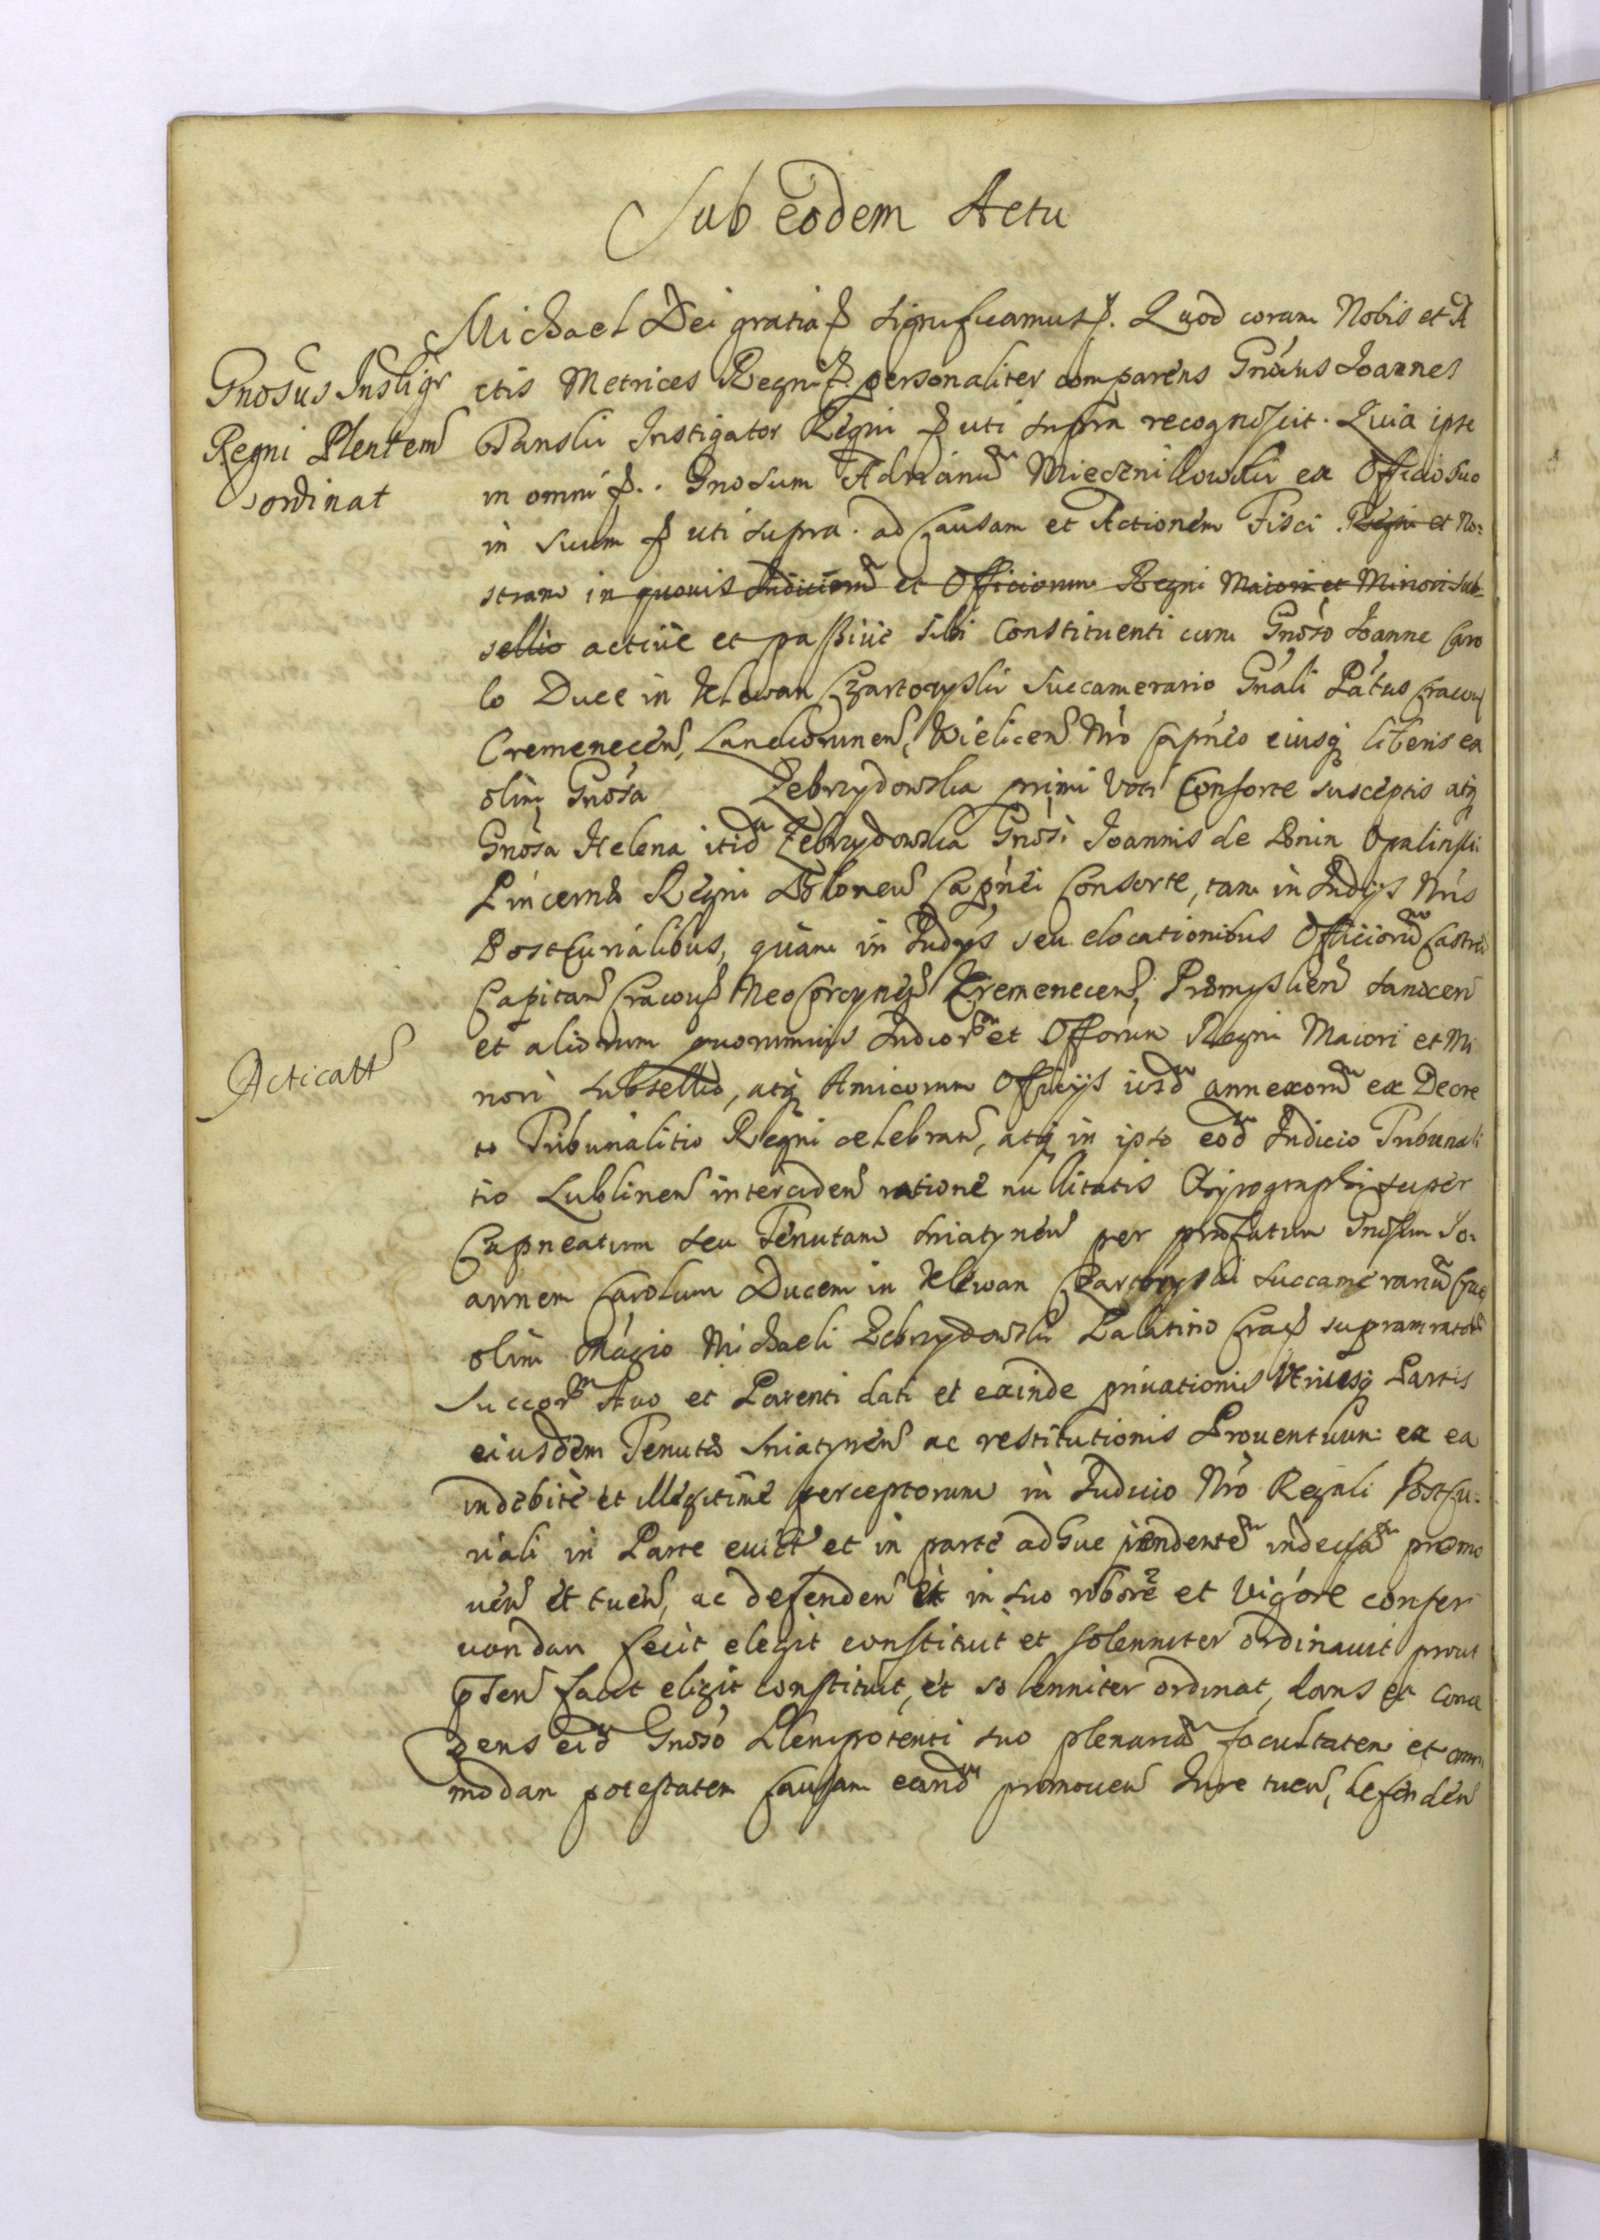 Sub eodem Actu
Michael Dei gratia significamus. Quod coram Nobis et A
Gnosus Instigr
Regni Plentem
ordinat
ctis Metrices Regni personaliter comparens Gnosus Joannes
Panski Instigator Regni uti supra recognoscit. Quia ipse
in omni Gnosum Adrianum ex Officio suo
in suum uti supra. ad Causam et Actionem Fisci Regni et No:
stram in quouis Judiciorum et Officiorum Regni Maiori et Minori sub-
sellio actiue et passiue sibi Constituenti cum Gnoso Joanne Caro
lo Duce in Klewan Czartoryski Succamerario Gnali Patus Cracou
Cremenecen, Lanckorunen, Wielicen Nro Capneo eiusq liberis ex
olim Gnosa Zebrzydowska primi Voti Consorte susceptis atq
Gnosa Helena itid Zebrzydowska Gnosi Joannis de Bnin Opalinski
Pincernae Regni Capnei Consorte, tam in Judijs Nris
PostCurialibus, quam in Judijs seu elocationibus Officiorum Castren
Capitan Cracou NeoCorcynen Kremenecen, Praemyslien Sanocen
et aliorum quorumuis Judior et Offorum Regni Maiori et Mi
Acticatt
nori Subsellio, atq Amicorum Officijs iisd annexorum ex Decre
to Tribunalitio Regni celebran, atq in ipso eod Judicio Tribunali
tio Lublinen interceden ratione nullitatis Chyrographi super
Capneatum seu Tenutam Sniatynen per praefatum Gnosum Jo:
annem Carolum Ducem in Klewan Czartoryski Succamerarium Crac
olim Magco Michaeli Zebrzydowski Palatino Crac supramrator
Succor Auo et Parenti dati et exinde priuationis Utriusq Partis
eiusdem Tenutae Sniatynen ac restitutionis Prouentuum ex ea
indebite et illegitime perceptorum in Judicio Nro Regali PostCu:
riali in Parte euict et in parte adhuc pendente indecisa promo
uen et tuen, ac defenden et in suo robore et Vigore conser
uandam fecit elegit constituit et solenniter ordinauit prout
pden facit eligit constituit, et solenniter ordinat, dans et conce
dens eid Gnoso Plenipotenti suo plenariam facultatem et omni
modam potestatem Causam eand promouen Jure tuen, defenden